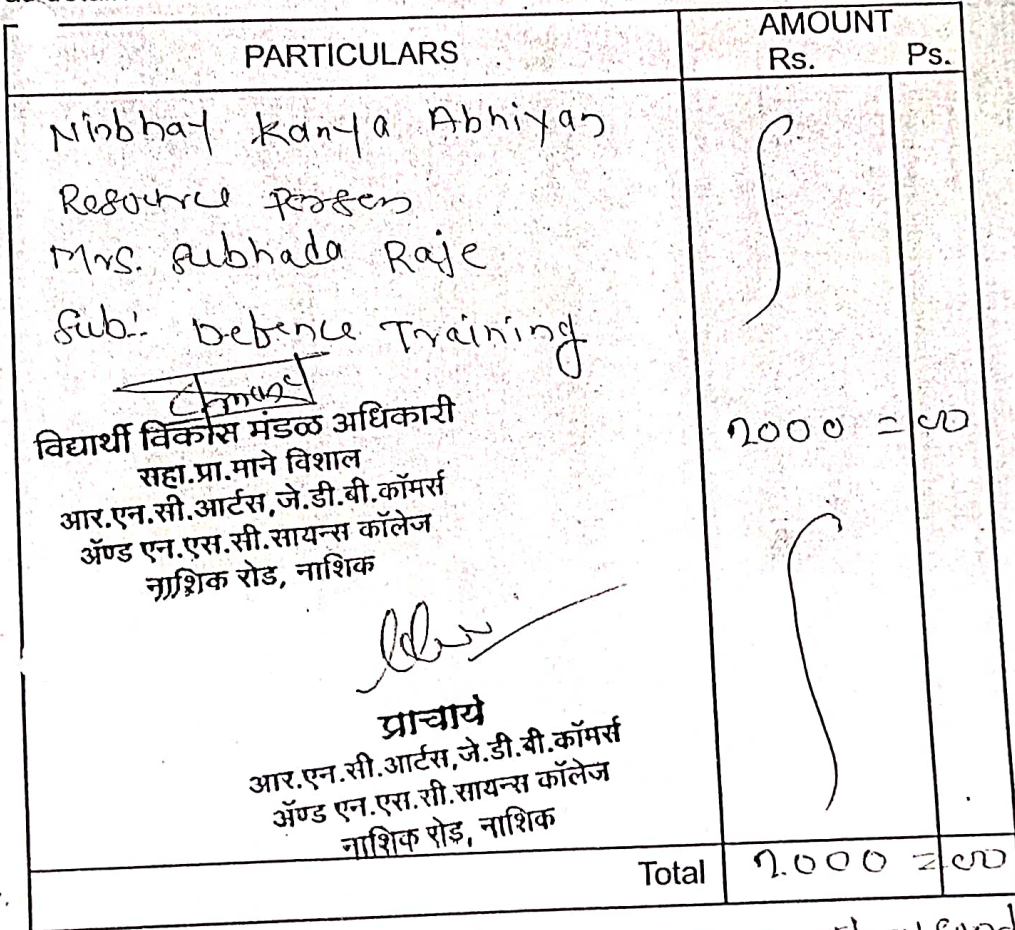 PARTICULARS
AMOUNT
Rs. Ps.
Nirbhay Kanya Abhiyan
Resource Person
Mrs. Subhada Raje
Sub:- Defence Training
विद्यार्थी विकास मंडळ अधिकारी
सहा.प्रा.माने विशाल
आर.एन.सी.आर्टस,जे.डी.बी.कॉमर्स
ॲण्ड एन.एस.सी.सायन्स कॉलेज
नाशिक रोड, नाशिक
2000 = 00
प्राचार्य
आर.एन.सी.आर्टस,जे.डी.बी.कॉमर्स
ॲण्ड एन.एस.सी.सायन्स कॉलेज
नाशिक रोड, नाशिक
Total 2000 = 00